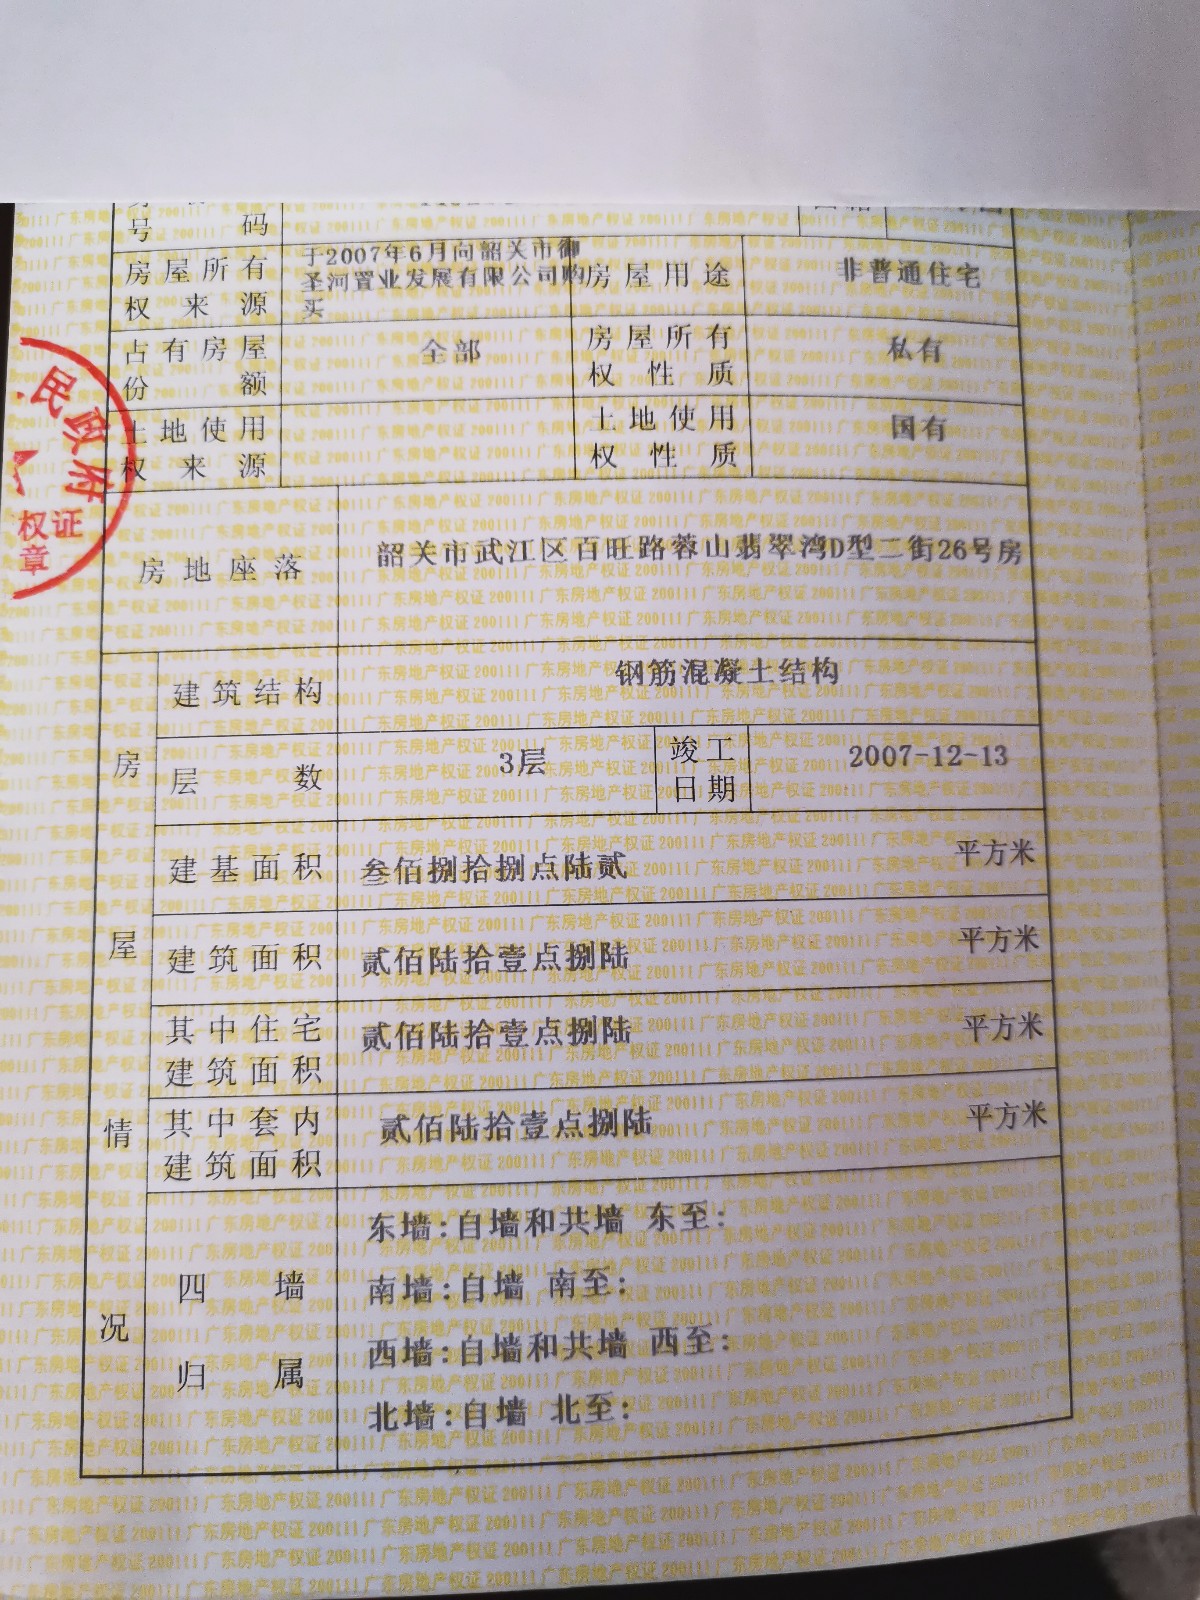 号 码
房屋所有
权来源
于2007年6月向韶关市御
圣河置业发展有限公司购
买
房屋用途
非普通住宅
占有房屋
份额
全部
房屋所有
权性质
私有
土地使用
权来源
土地使用
权性质
国有
民政府
权证
章
房地座落
韶关市武江区百旺路蓉山翡翠湾D型二街26号房
房屋情况
建筑结构
钢筋混凝土结构
层数
3层
竣工
日期
2007-12-13
建基面积
叁佰捌拾捌点陆贰
平方米
建筑面积
贰佰陆拾壹点捌陆
平方米
其中住宅
建筑面积
贰佰陆拾壹点捌陆
平方米
其中套内
建筑面积
贰佰陆拾壹点捌陆
平方米
四墙
归属
东墙:自墙和共墙 东至:
南墙:自墙 南至:
西墙:自墙和共墙 西至:
北墙:自墙 北至:
广东房地产权证 200111